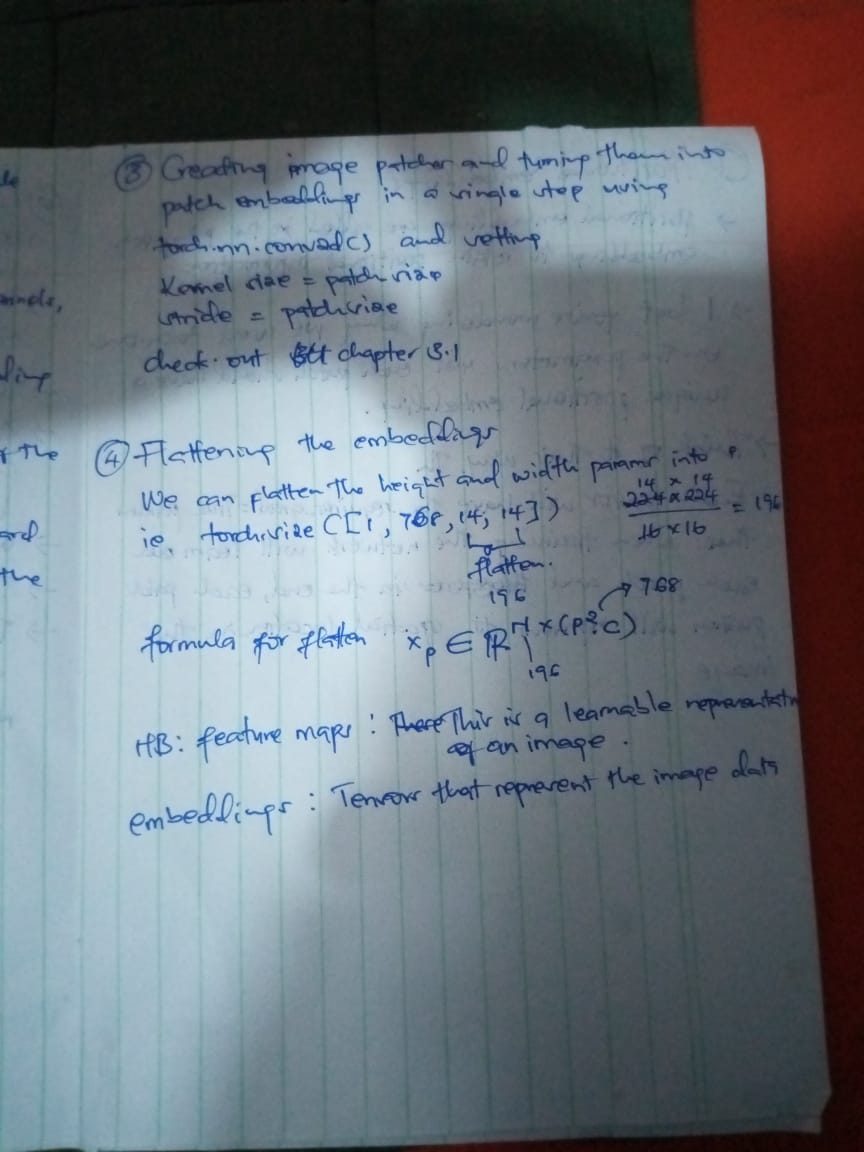 ③ Creating image patches and turning them into
patch embeddings in a single step using
torch.nn.conv2d() and setting
Kernel size = patch size
stride = patch size
check out chapter 3.1
④ Flattening the embeddings
We can flatten the height and width params into P.
ie torch.size ([1, 768, 14, 14])
flatten.
196
14 × 14
224 × 224
16 × 16
= 196
→ 768
formula for flatten x_p ∈ ℝ^N × (P²·C)
196
NB: feature maps : This is a learnable representatn
of an image.
embeddings : Tensors that represent the image data
nnels,
ding
f the
ard
the